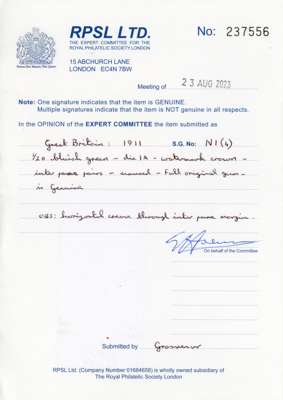 RPSL LTD.
THE EXPERT COMMITTEE FOR THE
ROYAL PHILATELIC SOCIETY LONDON
No: 237556
15 ABCHURCH LANE
LONDON EC4N 7BW
Meeting of 23 AUG 2023
Note: One signature indicates that the item is GENUINE.
Multiple signatures indicate that the item is NOT genuine in all respects.
In the OPINION of the EXPERT COMMITTEE the item submitted as
Great Britain: 1911 S.G. No: N1(4)
bluish green - die 1A - watermark crown -
inter pane pairs - unused - Full original gum -
is Genuine
horizontal crease through inter pane margin.
On behalf of the Committee
Submitted by Grosvenor
RPSL Ltd. (Company Number 01684658) is wholly owned subsidiary of
The Royal Philatelic Society London